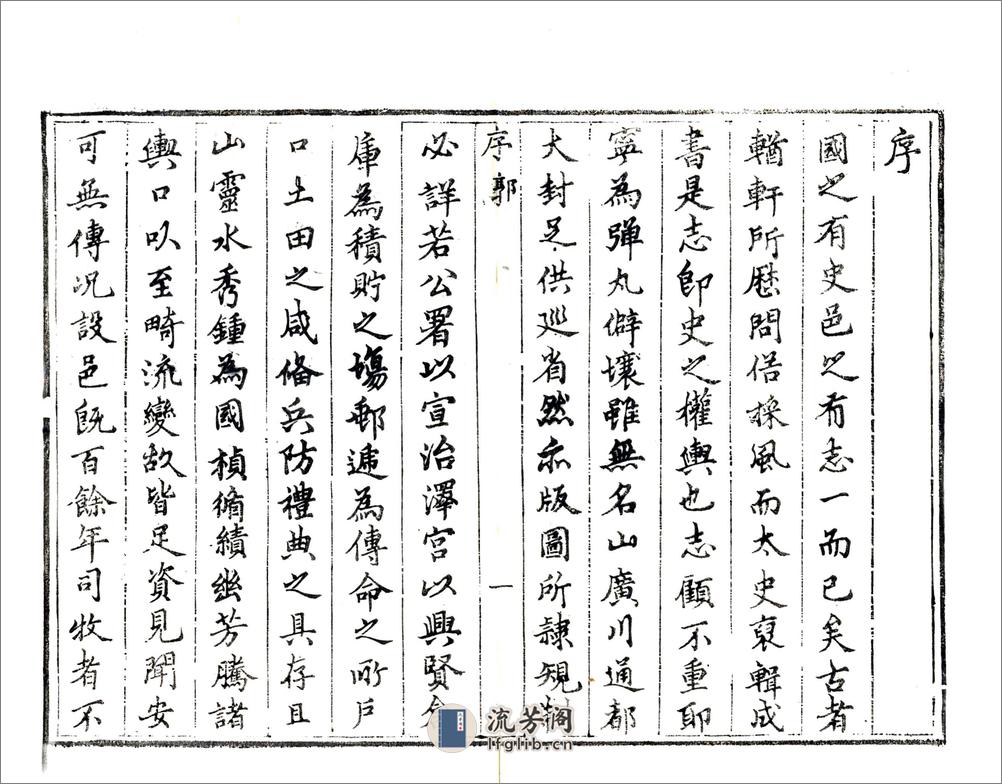 序
國之有史邑之有志一而已矣古者
輶軒所歷問俗採風而太史裒輯成
書是志即史之權輿也志顧不重耶
寧為彈丸僻壤雖無名山廣川通都
大封足供巡省然亦版圖所隸規
序 郭 一
必詳若公署以宣治澤宮以興賢倉
庫為積貯之場郵遞為傳命之所戶
口土田之咸俻兵防禮典之具存且
山靈水秀鍾為國楨脩績幽芳騰諸
輿口以至畸流變故皆足資見聞安
可無傳况設邑既百餘年司牧者不
流芳阁
lfglib.cn